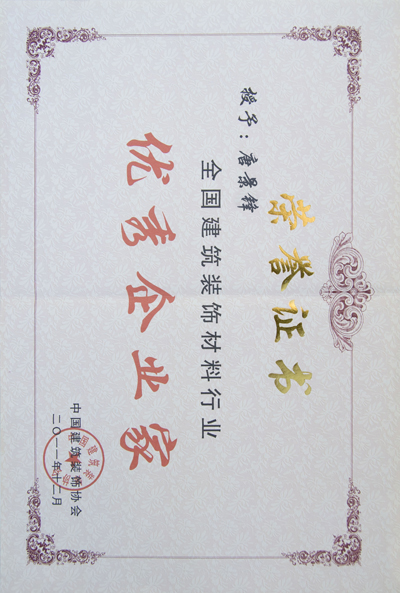 荣誉证书
授予：唐景锋
全国建筑装饰材料行业
优秀企业家
中国建筑装饰协会
二〇一一年十二月